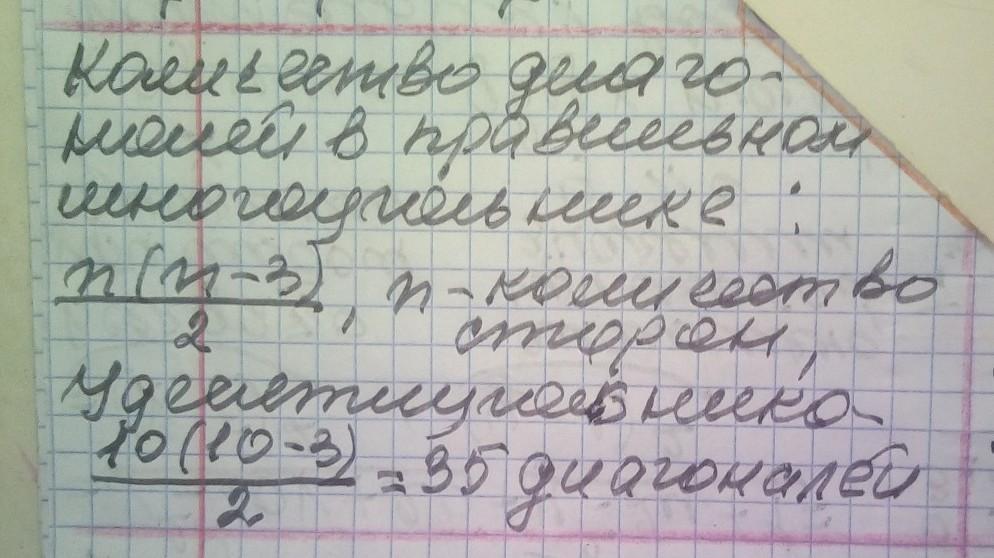 Количество диаго-
налей в правильном
многоугольнике :
n(n-3)/2, n - количество
сторон,
У десятиугольника-
10(10-3)/2 = 35 диагоналей